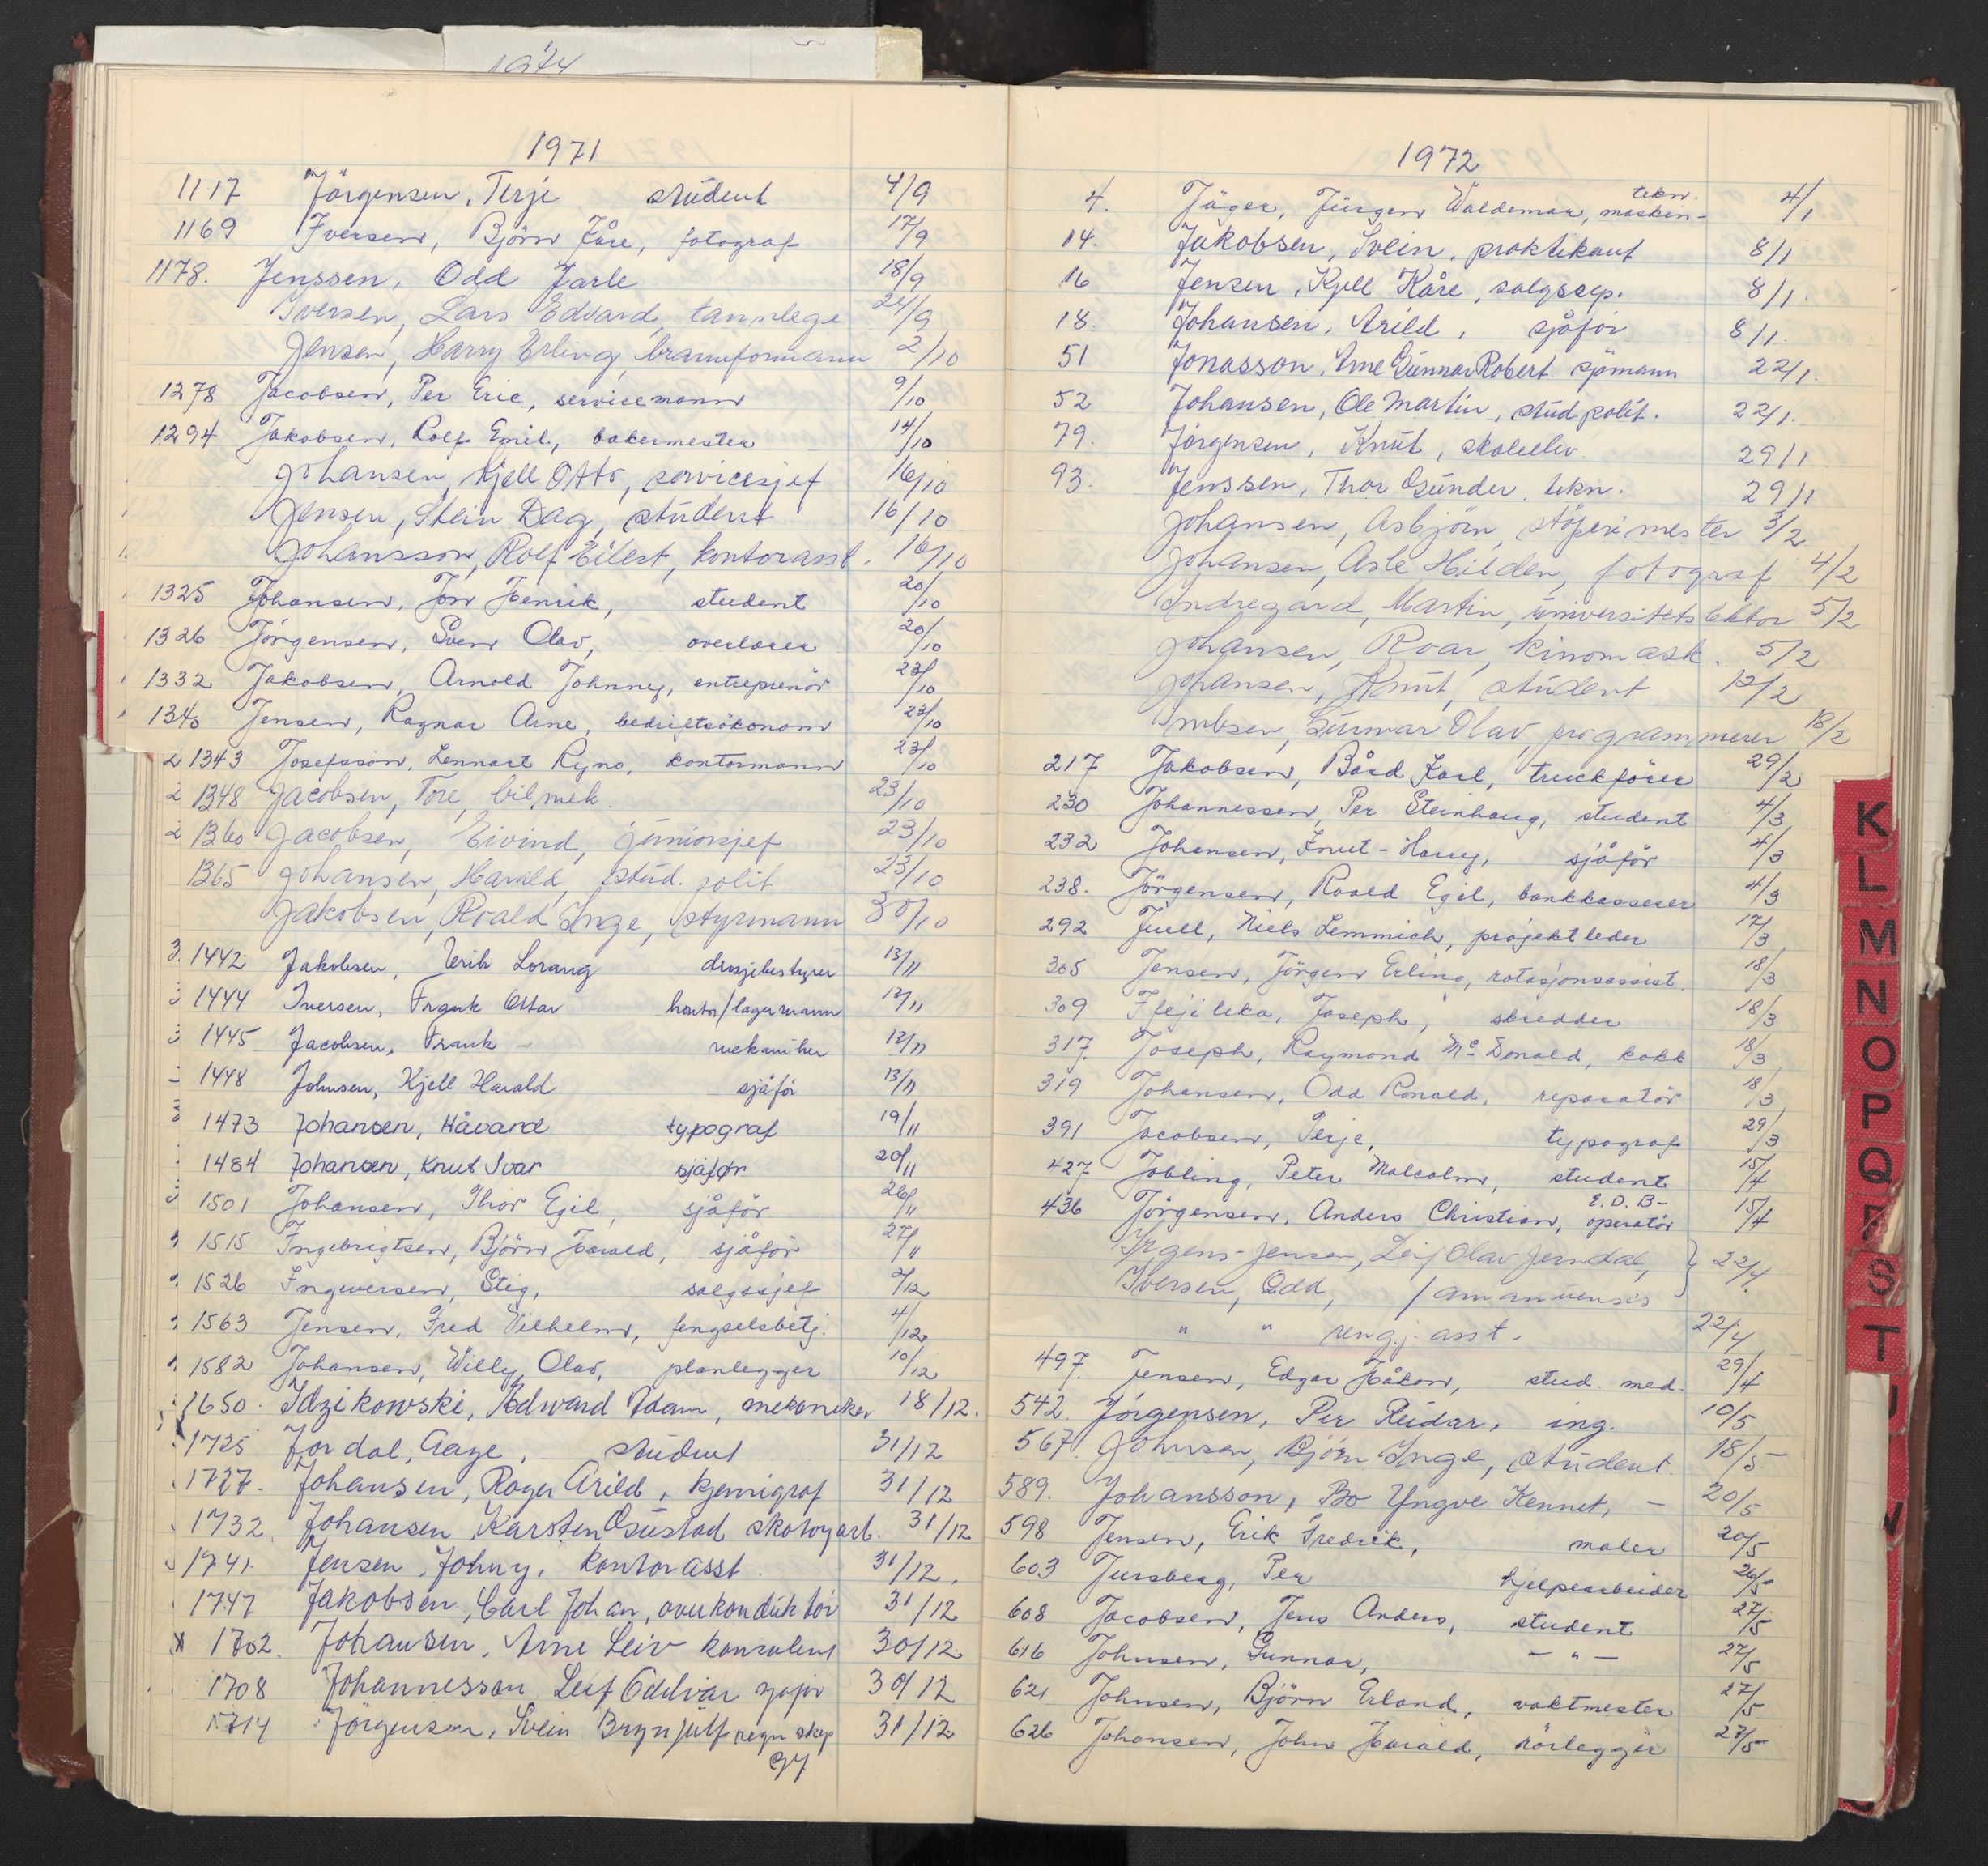 1974
1971
1117 Jörgensen, Terje student 4/9
1169 Iversen, Björn Kåre, fotograf 17/9
1178. Jenssen, Odd Jarle 18/9
Iversen, Lars Edvard, tannlege 24/9
Jensen, Harry Erling, brannformann 2/10
1278 Jacobsen, Per Eric, servicemann 9/10
1294 Jakobsen, Rolf Emil, bakermester 14/10
Johansen, Kjell Otto, servicesjef 16/10
Jensen, Stein Dag, student 16/10
Johansson, Rolf Eilert, kontorasst. 16/10
1325 Johansen, Jon Henrik, student 20/10
1326 Jörgensen, Sven Olav, overlærer 20/10
1332 Jakobsen, Arnold Johnney, entreprenör 23/10
1340 Jensen, Ragnar Arne, bedriftsökonom 23/10
1343 Josefsson, Lennart Ryno, kontormann 23/10
1348 Jacobsen, Tore, bilmek. 23/10
1360 Jacobsen, Eivind, juniorsjef 23/10
1365 Johansen, Harald, stud. polit 23/10
Jakobsen, Roald Inge, styrmann 30/10
1442 Jakobsen, Erik Lorang drosjebestyrer 13/11
1444 Iversen, Frank Ottar kontor/lagermann 13/11
1445 Jacobsen, Frank - mekaniker 13/11
1448 Johnsen, Kjell Harald sjåför 13/11
1473 Johansen, Håvard typograf 19/11
1484 Johansen, Knut Ivar sjåfør 20/11
1501 Johansen, Thor Egil, sjåför 26/11
1515 Ingebrigtsen, Björn Harald, sjåför 27/11
1526 Ingwersen, Stig, salgssjef 2/12
1563 Jensen, Fred Vilhelm, fengselsbetj. 4/12
1582 Johansen, Willy Olav, planlegger 10/12
1650. Idzikowski, Edward Adam, mekaniker 18/12.
1725 Jordal, Aage, student 31/12
1727. Johansen, Roger Arild, kjemigraf 31/12
1732. Johansen, Karsten Gustad skotøyarb. 31/12
1741. Jensen, Johny, kontorasst. 31/12.
1747 Jakobsen, Carl Johan, overkonduktör 31/12
1702. Johansen, Arne Leiv konsulent 30/12
1708 Johannesson, Leif Oddvar 30/12
1714 Jörgensen, Svein Brynjulf regnskp 31/12
1972
tekn.
4. Jäger, Jürgen Waldemar, maskin- 4/1
14. Jakobsen, Svein, praktikant 8/1
16 Jensen, Kjell Kåre, salgsrep. 8/1.
18. Johansen, Arild, sjåför 8/1.
51 Jonasson, Arne Gunnar Robert sjömann 22/1.
52 Johansen, Ole Martin, stud polit. 22/1.
79. Jörgensen, Knut, skoleelev. 29/1
93. Jenssen, Thor Gunder, tekn. 29/1
Johansen, Asbjörn, stöperimester 3/2
Johansen, Asle Hilden, fotograf 4/2
Indregard, Martin, universitetslektor 5/2
Johansen, Roar, kinomask. 5/2
Johansen, Knut, student 12/2
Gunnar Olav, programmerer 18/2
217 Jakobsen, Bård Karl, truckförer 29/2
230 Johannessen, Per Steinhaug, student 4/3
232 Johansen, Knut-Harry, sjåför 4/3
238. Jörgensen, Roald Egil, bankkasserer 4/3
292 Juell, Niels Lemmich, prosjektleder 17/3
305 Jensen, Jörgen Erling, rotasjonsassist. 18/3
309 Joseph, skredder 18/3
317. Joseph, Raymond Mc Donald, kokk 18/3
319 Johansen, Odd Ronald, reparatör 18/3
391 Jacobsen, Terje, typograf 29/3
427 Jobling, Peter Malcolm, student 15/4
E.D.B-
436 Jörgensen, Anders Christian, operatör 15/4
Irgens-Jensen, Leif Olav Jerndal, } 22/4.
Iversen, Odd, / amanuensis
" " rengj. asst. 22/4
497. Jensen, Edgar Håkon, stud. med. 29/4
542. Jörgensen, Per Reidar, ing. 10/5
567. Johnsen, Björn Inge, student. 18/5
589. Johansson, Bo Yngve Kennet, - 20/5
598 Jensen, Erik Fredrik, maler 20/5
603 Jursberg, Per hjelpearbeider 26/5
608 Jacobsen, Jens Anders, student 27/5
616 Johnsen, Gunnar, - " - 27/5
621 Johnsen, Björn Erland, vaktmester 27/5
626 Johansen, John Harald, rörlegger 27/5
K
L
M
N
O
P
Q
R
S
T